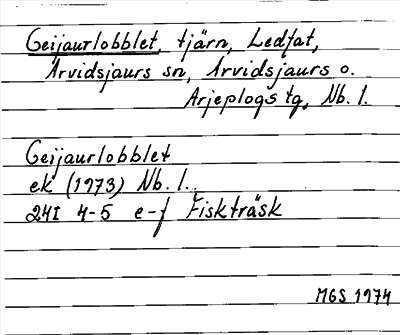 Geijaurlobblet, tjärn, Ledfat,
Arvidsjaurs sn, Arvidsjaurs o.
Arjeplogs tg, Nb. l.
Geijaurlobblet
ek (1973) Nb. l.
24I 4-5 e-f Fiskträsk
MGS 1974